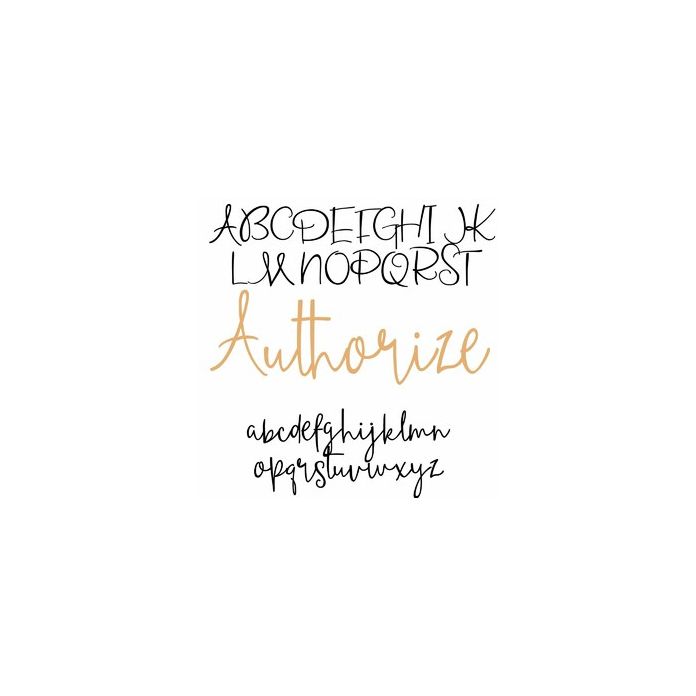 ABCDEFGHIJK
LMNOPQRST
Authorize
abcdefghijklmn
opqrstuvwxyz